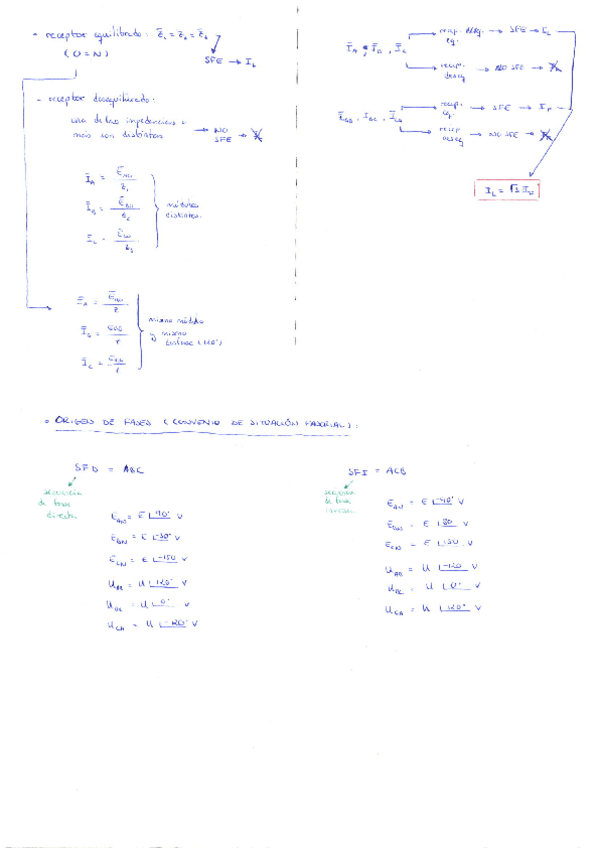 - receptor equilibrado: Z̄₁ = Z̄₂ = Z̄₃
(O=N)
SFE → I_L
- receptor desequilibrado:
una de las impedancias o
más son distintas → NO SFE →
Ī_A = Ē_AN / Z₁
Ī_B = Ē_BN / Z₂
Ī_C = Ē_CN / Z₃
módulos
distintos.
Ī_A = Ē_AN / Z
Ī_B = E_BN / Z
Ī_C = Ē_CN / Z
mismo módulo
y mismo
Ī_A, Ī_B, Ī_C
recep. eq. → SFE → I_L
recep. deseq → NO SFE →
recep. eq. → SFE → I_F
recep. deseq → NO SFE →
I_L = √3 I_F
- ORIGEN DE FASES (CONVENIO DE SITUACIÓN FASORIAL):
SFD = ABC
secuencia
de fase
directa
E_AN = E ∟90° V
E_BN = E ∟-30° V
E_CN = E ∟-150 V
U_AB = U ∟120° V
U_BC = U ∟0° V
U_CA = U ∟-120° V
SFI = ACB
secuencia
de fase
inversa
E_AN = E ∟-90° V
E_BN = E ∟30° V
E_CN = E ∟150 V
U_AB = U ∟-120 V
U_BC = U ∟0° V
U_CA = U ∟120° V